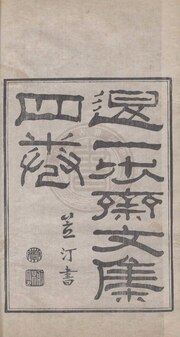 退一步齋文集
四卷
汀書